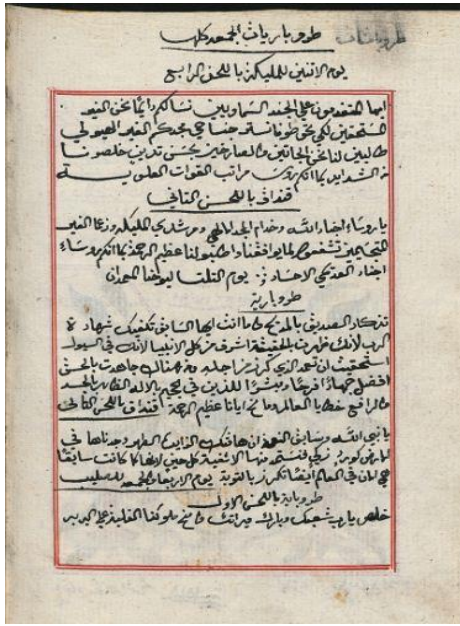 طروباريات الجمعه كلها
يوم الاتنين للمليكة باللحن الرابع
ايها المتقدمون علي الجند السماويين نسالكم دايمًا نحن الغير
المستحقين لكي نحن طوباتكم تسترونا مجدكم الغير الهيولي
طالبين لنا نحن الجاثين والصارخين بحسن تدين خلصونا
من الشدايد بما انكم روسا مراتب القوات العلوية
قنداق باللحن التاني
يا روساء اجناد الله وخدام المجد الالهي ومرشدي المليكه وزعما الغير
المتجسمين تشفعوا بما يوافقنا واطلبوا لنا عظيم الرحمة بما انكم روساء
اجناد العديمي الاجساد يوم التلتا ليوحنا المعمدان
طروبارية
تذكار الصديق بالمديح فاما انت ايها السابق تكفيك شهادة
الرب لانك ظهرت بالحقيقة اشرف من كل الانبيا لانك في السيول
استحقيت ان تعمد الذي كرز من اجله ومن هناك جاهدت بالحق
افضل جهادًا فرحًا ومبشرًا للذين في الجحيم بالاله الظاهر بالجسد
الرافع خطايا العالم ومانح ايانا عظيم الرحمة قنداق باللحن التاني
يا نبي الله وسابق النعمة ان هامتك الزايدة الطهر وجدناها في
الارض كوردة زكية فنستمد منها الاشفية كل حين لانها كما كانت سابقًا
هي الان في العالم ايضًا تكرز بالتوبة يوم الاربعا والجمعة للصليب
طروبارية باللحن الاول
خلص يا رب شعبك وبارك ميراتك وامنح ملوكنا الغلبة علي البربر